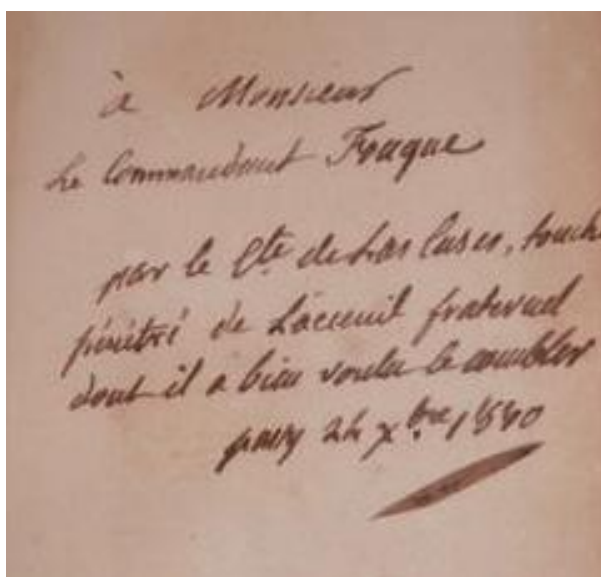 à Monsieur
Le Commandant Fouque
par le Cte de Las Cases, touché
pénétré de L'acceuil fraternel
dont il a bien voulu le combler
passy 24 Xbre 1840